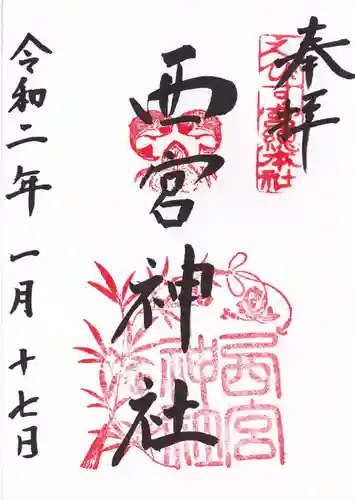 奉拝
えびす宮総本社
西宮神社
西宮神社
令和二年一月十七日